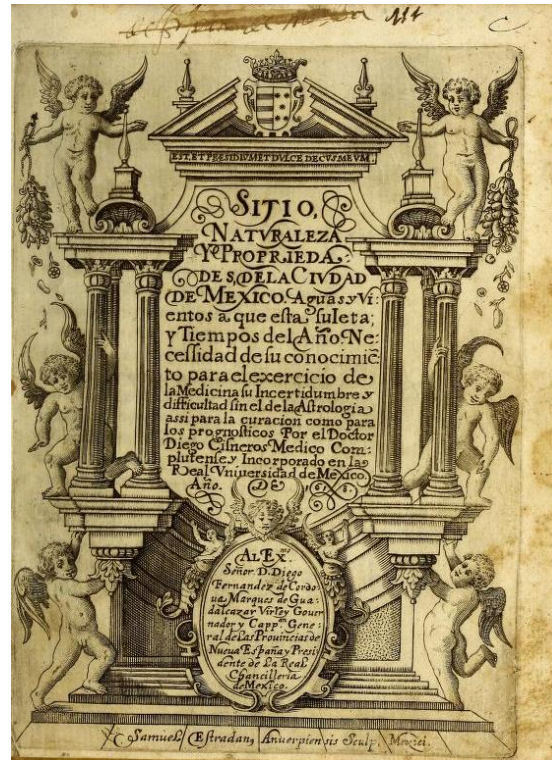 114
C
EST, ET PRÆSIDIVM ET DVLCE DECVS MEVM.
SITIO,
NATVRALEZA
Y PROPRIEDA-
DES, DE LA CIVDAD
DE MEXICO. Aguas y Vi-
entos a que esta suIeta;
y Tiempos del Año. Ne-
cessidad de su conocimiẽ
to para el exercicio de
la Medicina su Incertidumbre y
difficultad sin el de la Astrologia
assi para la curacion como para
los prognosticos Por el Doctor
Diego Cisneros Medico Com-
plutense, y Incorporado en la
Real Vniuersidad de Mexico.
Año. DE
AL Ex.º
Señor D. Diego
Fernandez de Cordo-
ua, Marques de Gua-
dalcazar Virrey Gouer-
nador y Capp.an Gene-
ral de Las Prouincias de
Nueua España y Presi
dente de La Real
Chancilleria
de Mexico.
Samuel Estradanus Antuerpiensis Sculp. Mexici.